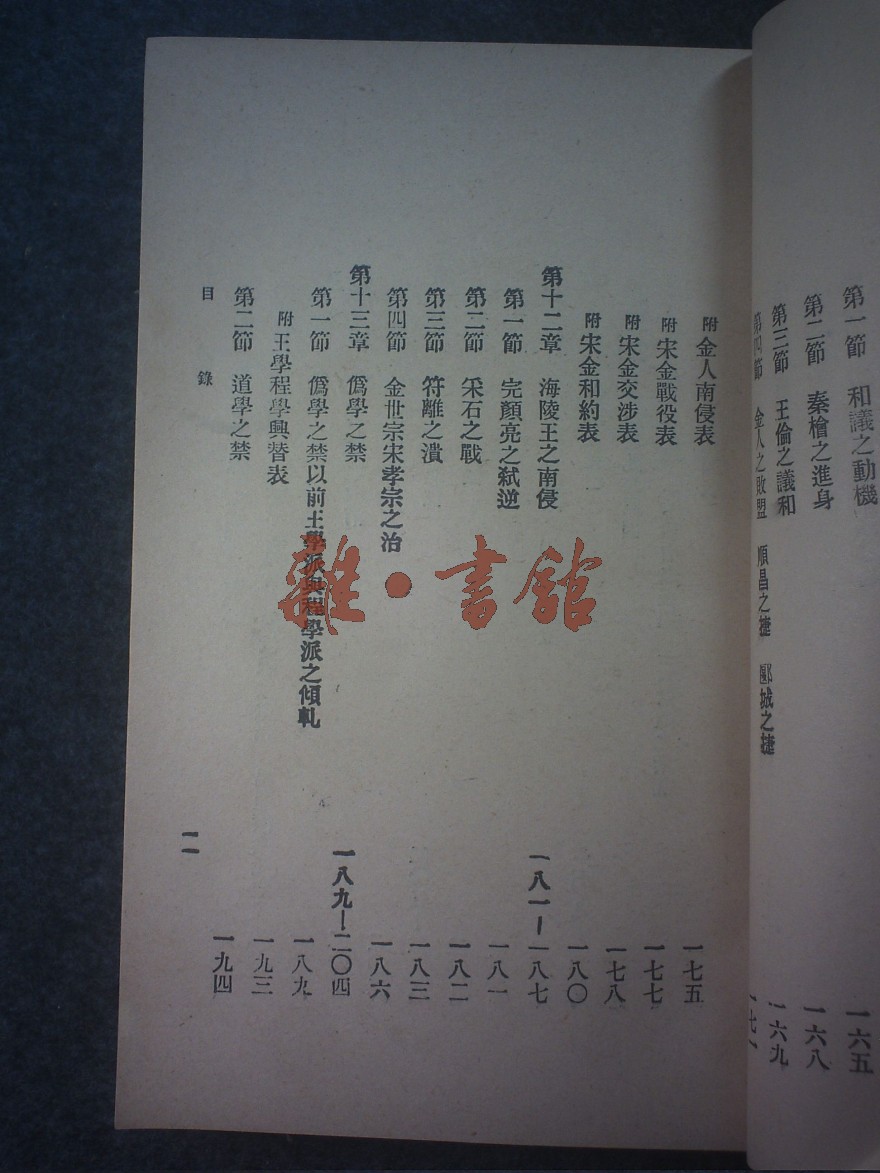 第一節 和議之動機 一六五
第二節 秦檜之進身 一六八
第三節 王倫之議和 一六九
第四節 金人之敗盟 順昌之捷 郾城之捷 一七一
附 金人南侵表 一七五
附 宋金戰役表 一七七
附 宋金交涉表 一七八
附 宋金和約表 一八〇
第十二章 海陵王之南侵 一八一—一八七
第一節 完顏亮之弒逆 一八一
第二節 采石之戰 一八二
第三節 符離之潰 一八三
第四節 金世宗宋孝宗之治 一八六
第十三章 僞學之禁 一八九—二〇四
第一節 僞學之禁以前王學派與程學派之傾軋 一八九
附 王學程學興替表 一九三
第二節 道學之禁 一九四
目錄
一一
雜·書館